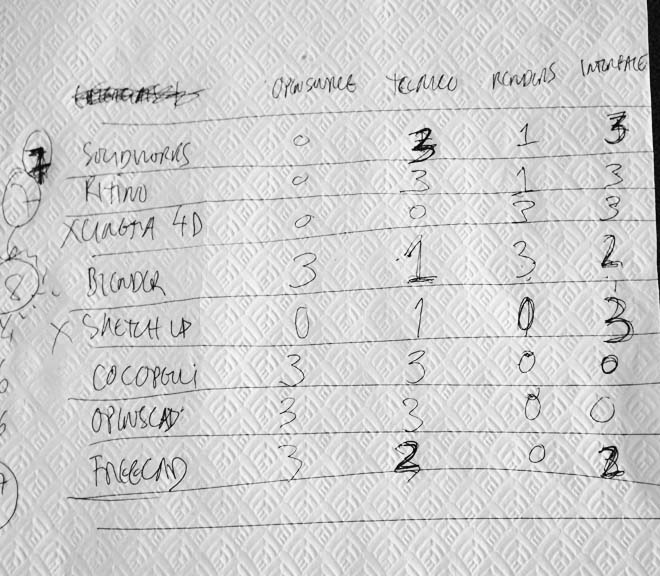 OPENSOURCE TECNICO RENDERS INTERFACE
7 SOLIDWORKS 0 3 1 3
7 RHINO 0 3 1 3
X CINEMA 4D 0 0 3 3
8 BLENDER 3 1 3 2
X SKETCH UP 0 1 0 3
6 COCOPELLI 3 3 0 0
6 OPENSCAD 3 3 0 0
7 FREECAD 3 2 0 2